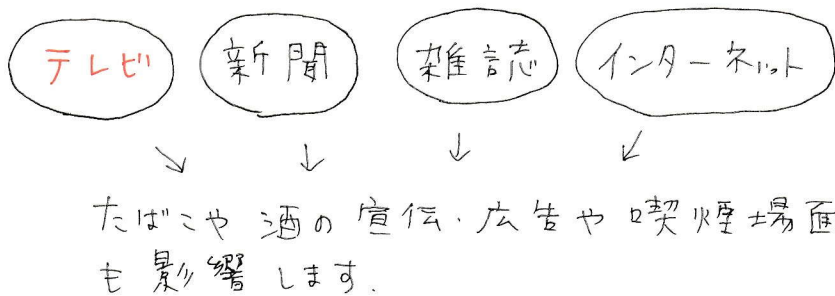 テレビ 新聞 雑誌 インターネット
たばこや酒の宣伝・広告や喫煙場面
も影響します.